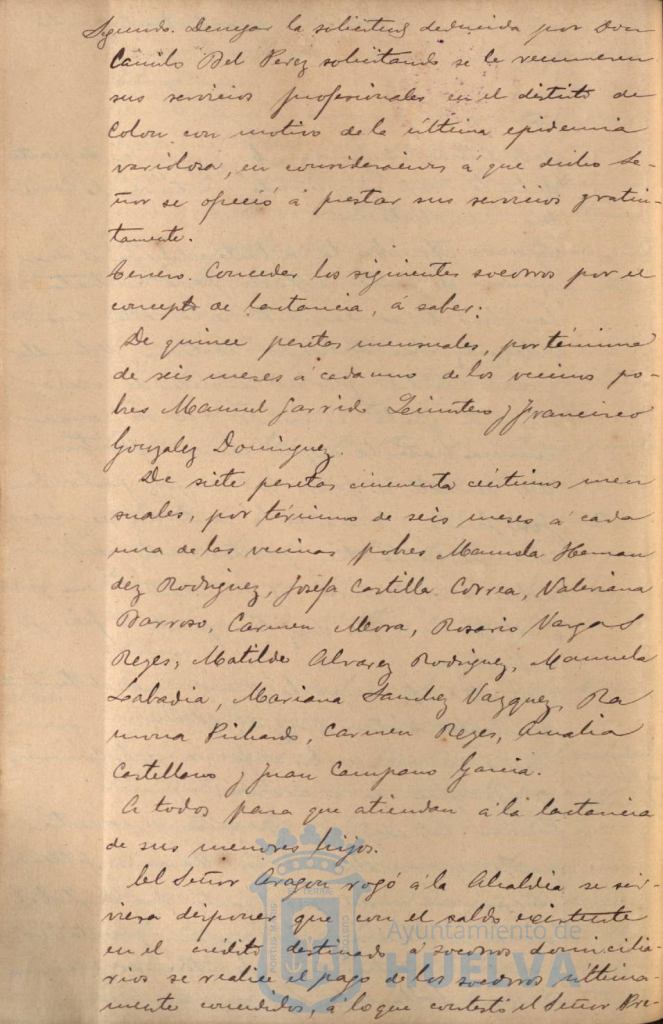 Segundo. Denegar la solicitud deducida por Don
Camilo Bel Perez solicitando se le remuneren
sus servicios profesionales en el distrito de
Colon con motivo de la última epidemia
variolosa, en consideracion á que dicho Se-
ñor se ofreció á prestar sus servicios gratui-
tamente.
Tercero. Conceder los siguientes socorros por el
concepto de lactancia, á saber:
De quince pesetas mensuales, por término
de seis meses á cada uno de los vecinos po-
bres Manuel Garrido Quintero y Francisco
Gonzalez Dominguez.
De siete pesetas cincuenta céntimos men
suales, por término de seis meses á cada
una de las vecinas pobres Manuela Hernan
dez Rodriguez, Josefa Castilla Correa, Valeriana
Barroso, Carmen Mora, Rosario Vargas
Reyes, Matilde Alvarez Rodriguez, Manuela
Labadia, Mariana Sanchez Vazquez, Ra
mona Pichardo, Carmen Reyes, Amalia
Castellano y Juan Campano Garcia.
A todos para que atiendan á la lactancia
de sus menores hijos.
El Señor Aragon rogó á la Alcaldia se sir-
viera disponer que con el saldo existente
en el crédito destinado á socorros domicilia-
rios se realice el pago de los socorros última-
mente concedidos, á lo que contestó el Señor Pre-
Ayuntamiento de
HUELVA